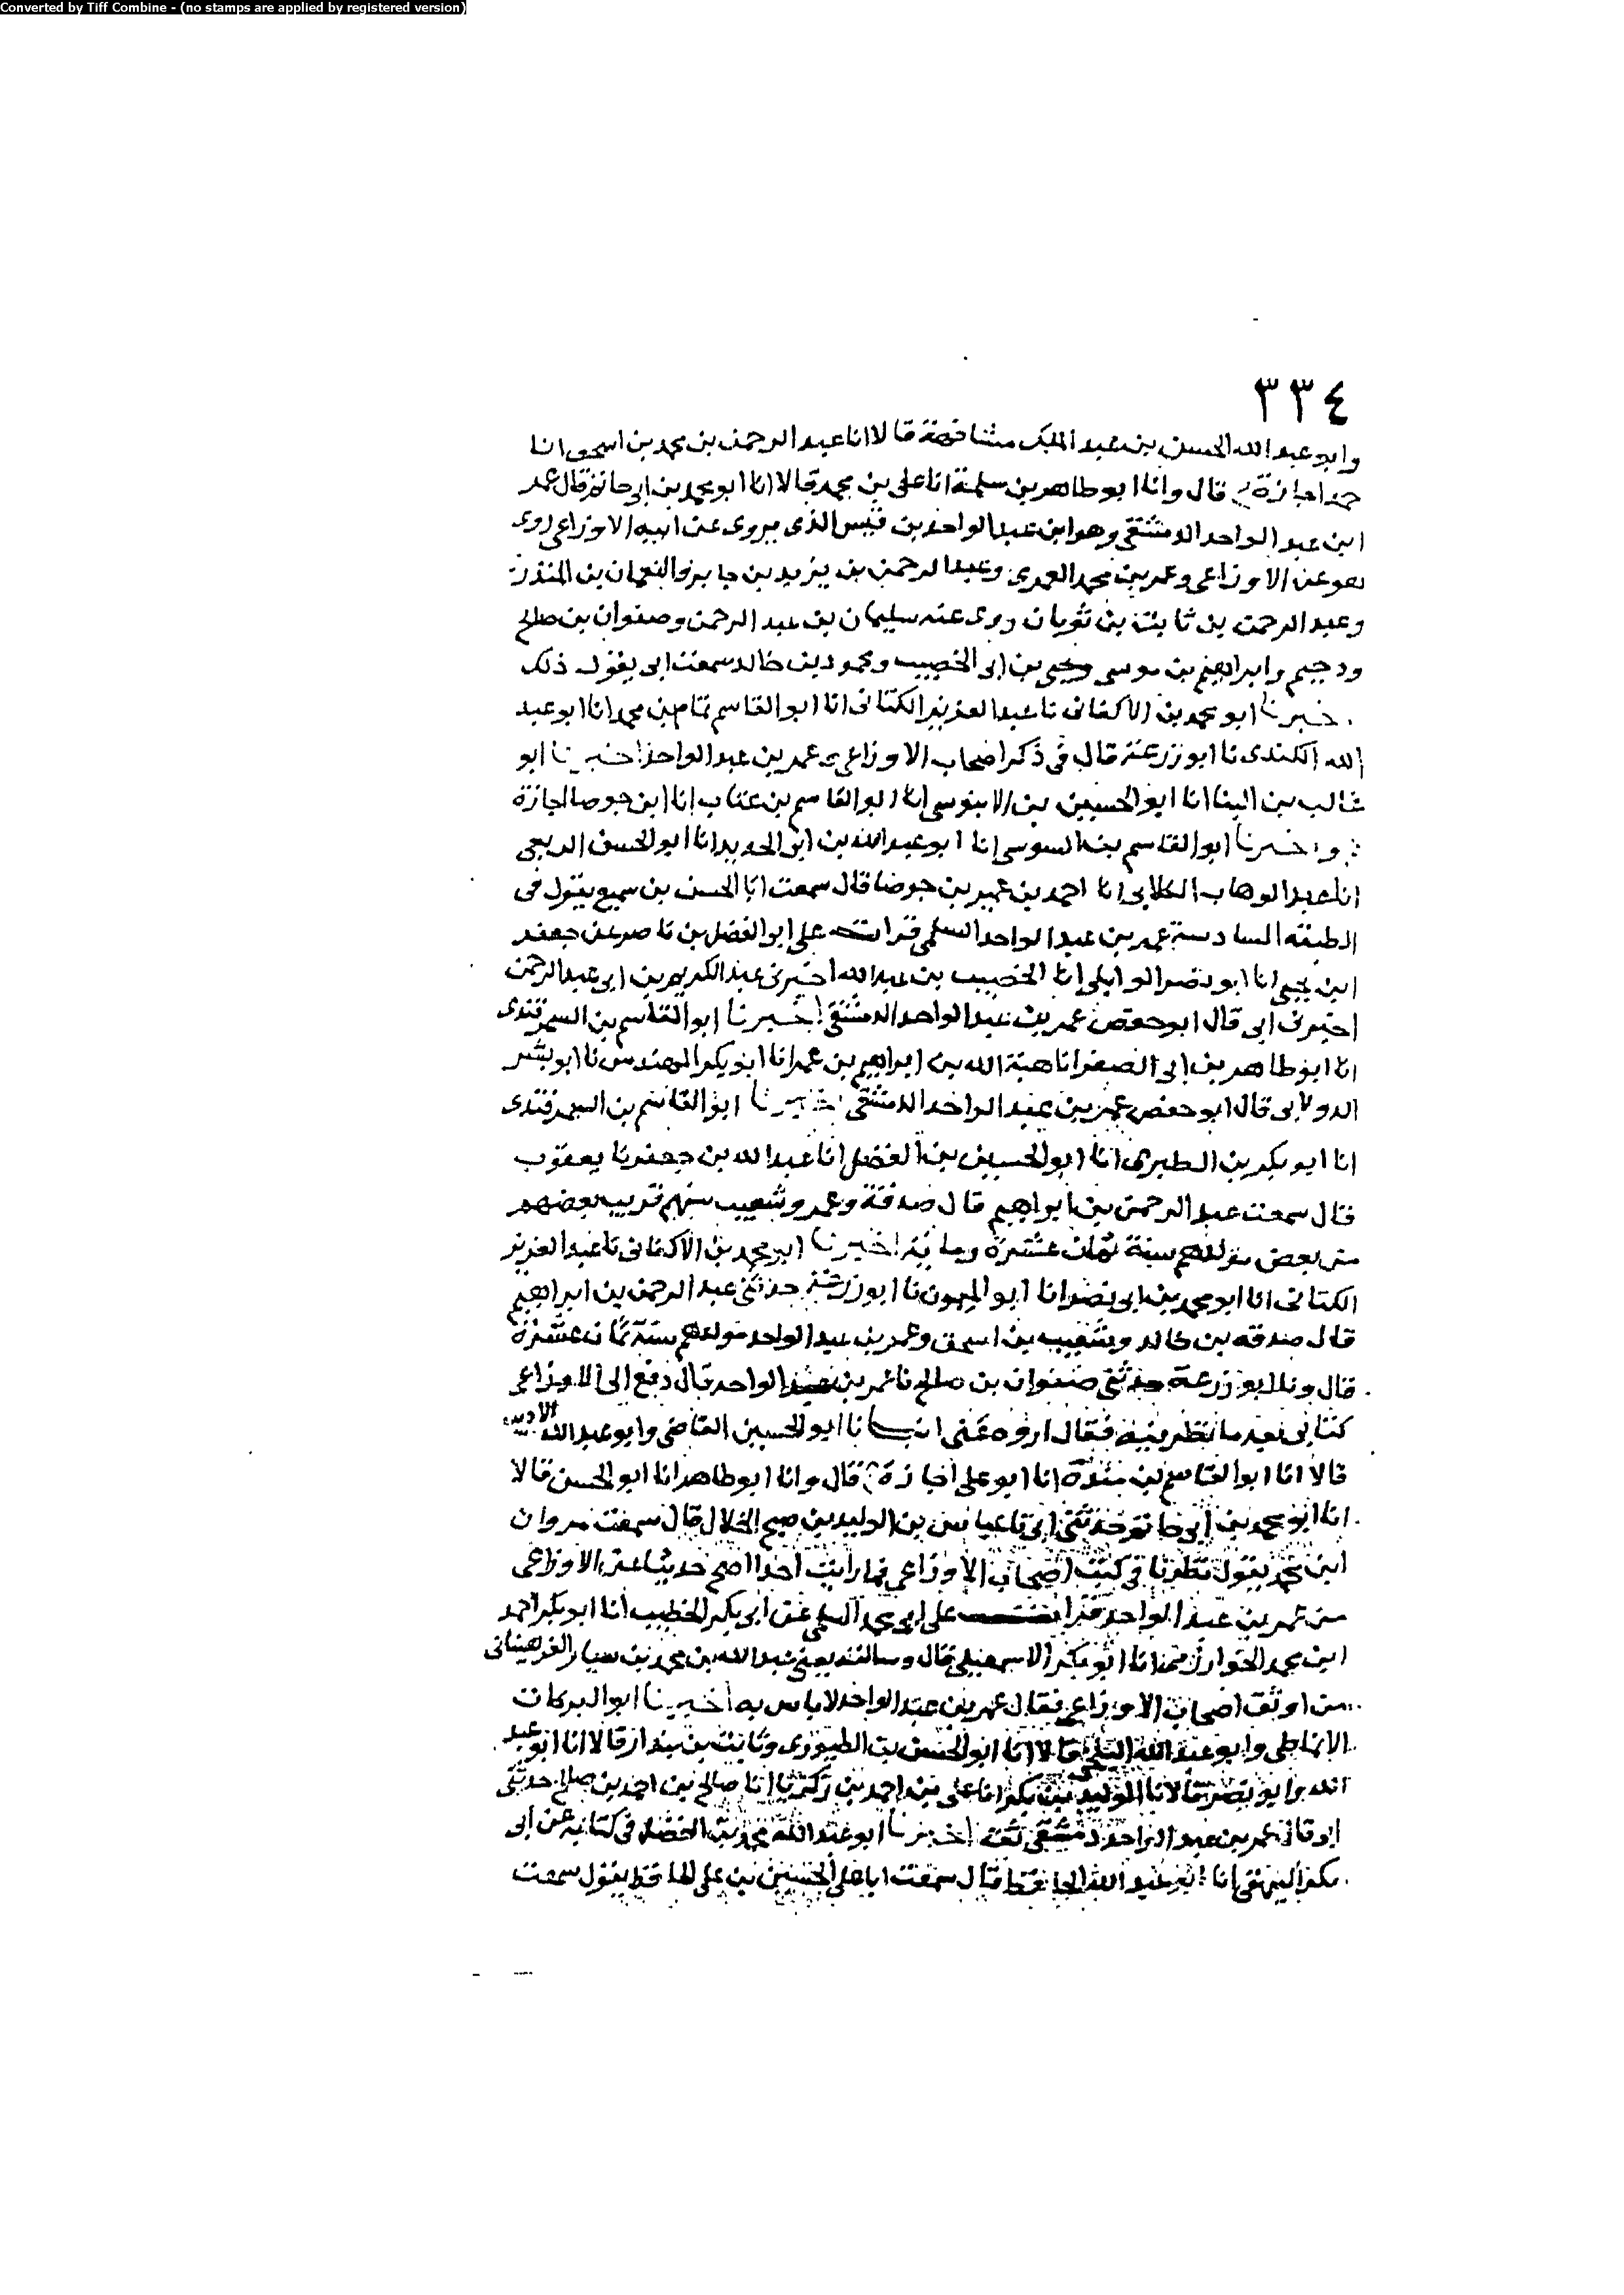 Converted by Tiff Combine - (no stamps are applied by registered version)
٣٣٤
وابو عبد الله الحسن بن عبد الملك مشافهة قالا انا عبد الرحمن بن محمد بن اسحق انا
حمد اجازة ح قال وانا ابو طاهر بن سلمة انا على بن محمد قالا انا ابو محمد بن ابى حاتم قال عمر
ابن عبد الواحد الدمشقى وهو ابن عبد الواحد بن قيس الذى يروى عن ابيه الاوزاعى روى
هو عن الاوزاعى وعمر بن محمد العمرى وعبد الرحمن بن يزيد بن جابر والنعمان بن المنذر
وعبد الرحمن بن ثابت بن ثوبان روى عنه سليمان بن عبد الرحمن وصفوان بن صالح
ودحيم وابراهيم بن موسى ويحيى بن ابى الخصيب ومحمود بن خالد سمعت ابى يقول ذلك
اخبرنا ابو محمد بن الاكفانى نا عبد العزيز الكتانى انا ابو القاسم تمام بن محمد انا ابو عبد
الله الكندى نا ابو زرعة قال فى ذكر اصحاب الاوزاعى عمر بن عبد الواحد اخبرنا ابو
غالب بن البنا انا ابو الحسين بن الابنوسى انا ابو القاسم بن عتاب انا ابن جوصا اجازة
ح واخبرنا ابو القاسم بن السوسى انا ابو عبد الله بن ابى الحديد انا ابو الحسن الربعى
انا عبد الوهاب الكلابى انا احمد بن عمير بن جوصا قال سمعت ابا الحسن بن سميع يقول فى
الطبقه السادسة عمر بن عبد الواحد السلمى قرات على ابو الفضل بن ناصر عن جعفر
ابن يحيى انا ابو نصر الوايلى انا الخصيب بن عبد الله اخبرنى عبد الكريم بن ابى عبد الرحمن
اخبرنى ابى قال ابو حفص عمر بن عبد الواحد الدمشقى اخبرنا ابو القاسم بن السمرقندى
انا ابو طاهر بن ابى الصقر انا هبة الله بن ابراهيم بن عمر انا ابو بكر المهندس نا ابو بشر
الدولابى قال ابو حفص عمر بن عبد الواحد الدمشقى اخبرنا ابو القاسم بن السمرقندى
انا ابو بكر بن الطبرى انا ابو الحسين بن الفضل انا عبد الله بن جعفر نا يعقوب
قال سمعت عبد الرحمن بن ابراهيم قال صدقة وعمر وشعيب سنهم قريب بعضهم
من بعض مولدهم سنة ثمان عشرة ومايه اخبرنا ابو محمد بن الاكفانى نا عبد العزيز
الكتانى انا ابو محمد بن ابى نصر انا ابو الميمون نا ابو زرعة حدثنى عبد الرحمن بن ابراهيم
قال صدقه بن خالد وشعيب بن اسحق وعمر بن عبد الواحد مولدهم سنة ثمان عشرة
قال ونا ابو زرعة حدثنى صفوان بن صالح نا عمر بن عبد الواحد قال دفع الى الاوزاعى
كتابى بعد ما نظر فيه فقال اروه عنى انبانا ابو الحسين القاضى وابو عبد الله الاديب
قالا انا ابو القاسم بن منده انا ابو على اجازة ح قال وانا ابو طاهر انا ابو الحسن قالا
انا ابو محمد بن ابى حاتم حدثنى ابى نا عباس بن الوليد بن صبح الخلال قال سمعت مروان
ابن محمد يقول نظرنا فى كتب اصحاب الاوزاعى فما رايت احدا اصح حديثا عن الاوزاعى
من عمر بن عبد الواحد قرات على ابى محمد السلمى عن ابى بكر الخطيب انا ابو بكر احمد
ابن محمد الخوارزمى انا ابو بكر الاسمعيلى قال وسالته يعنى عبد الله بن محمد بن سيار الفرهيانى
من اوثق اصحاب الاوزاعى فقال عمر بن عبد الواحد لا باس به اخبرنا ابو البركات
الانماطى وابو عبد الله البلخى قالا انا ابو الحسين بن الطيورى وثابت بن بندار قالا انا ابو عبد
الله وابو نصر قالا نا الوليد بن بكر انا على بن احمد بن زكريا انا صالح بن احمد بن صالح حدثنى
ابى قال عمر بن عبد الواحد دمشقى ثقة اخبرنا ابو عبد الله محمد بن الفضل فى كتابه عن ابى
بكر البيهقى انا ابو عبد الله الحافظ قال سمعت ابا على الحسين بن على الحافظ يقول سمعت